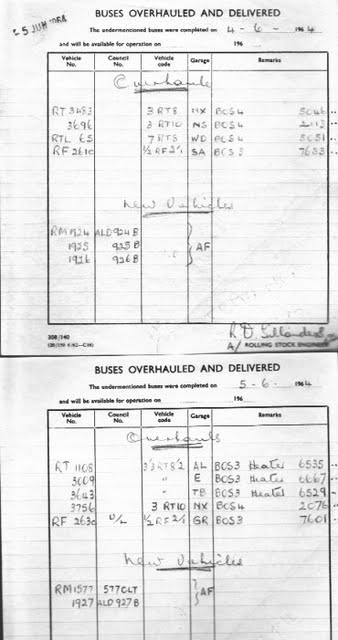 5 JUN 1964
BUSES OVERHAULED AND DELIVERED
The undermentioned buses were completed on 4-6- 1964
and will be available for operation on 196
Vehicle No. Council No. Vehicle code Garage Remarks
Overhauls
RT 3483 3 RT8 NX BOS4 5046
3696 3 RT10 NS BOS4 2113
RTL 65 7 RT8 WD BOS4 5051
RF 2610 ½ RF 2/1 SA BOS3 7633
New Vehicles
RM 1924 ALD 924 B
1925 925 B AF
1926 926 B
308/140
A/ ROLLING STOCK ENGINEER
BUSES OVERHAULED AND DELIVERED
The undermentioned buses were completed on 5-6- 1964
and will be available for operation on 196
Vehicle No. Council No. Vehicle code Garage Remarks
Overhauls
RT 1108 3/3 RT8/2 AL BOS3 Heater 6535
3009 " E BOS3 Heater 6667
3643 " TB BOS3 Heater 6529
3756 3 RT10 NX BOS4 2076
RF 263 U/L ½ RF 2/1 GR BOS3 7601
New Vehicles
RM 1577 577 CLT
1927 ALD 927 B AF